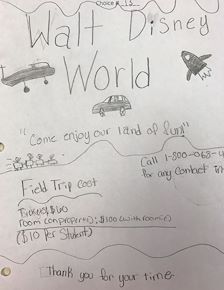 Choice # 13
Walt Disney
World
"Come enjoy our land of fun!"
Call 1-800-068-4
for any contact
Field Trip Cost
Room (on property): $100 (with room)
($10 Per Student)
Thank you for your time.